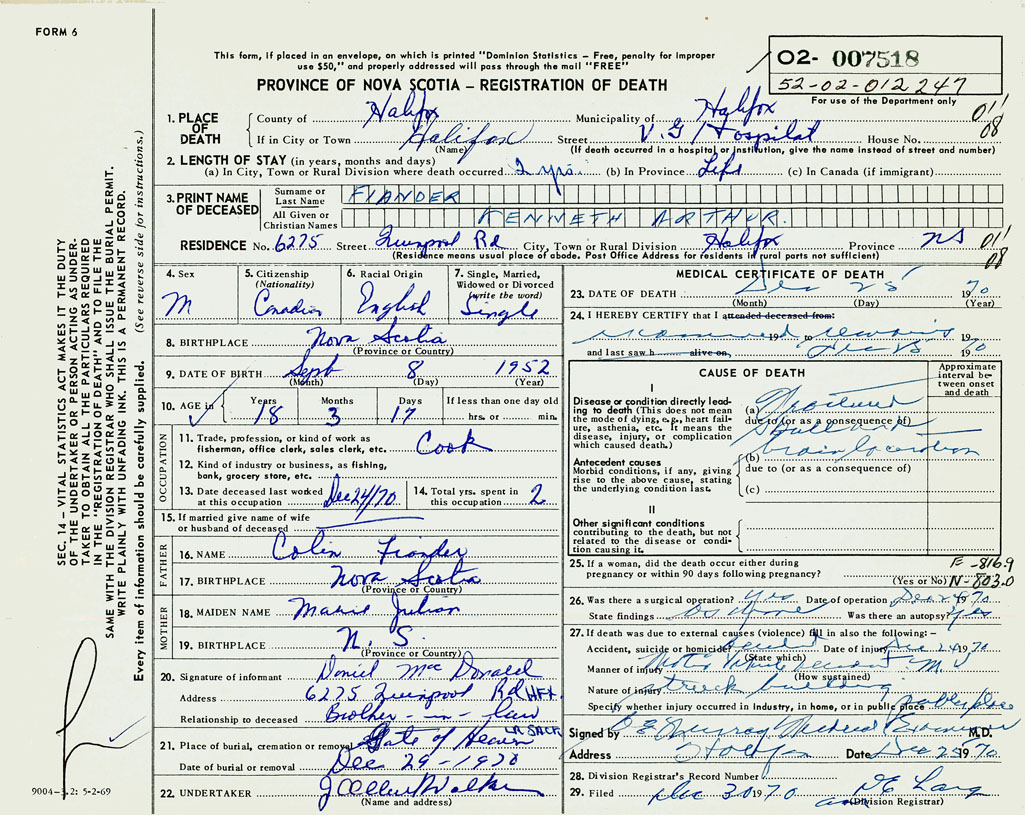 FORM 6
This form, if placed in an envelope, on which is printed "Dominion Statistics – Free, penalty for improper
use $50," and properly addressed will pass through the mail "FREE"
O2- 007518
52-02-012247
For use of the Department only
PROVINCE OF NOVA SCOTIA – REGISTRATION OF DEATH
1. PLACE OF DEATH
County of Halifax Municipality of Halifax 01/
If in City or Town Halifax Street V.G. Hospital House No. 08
(Name) (If death occurred in a hospital or institution, give the name instead of street and number)
2. LENGTH OF STAY (in years, months and days)
(a) In City, Town or Rural Division where death occurred 2 yrs. (b) In Province Life (c) In Canada (if immigrant)
3. PRINT NAME OF DECEASED
Surname or Last Name FIANDER
All Given or Christian Names KENNETH ARTHUR.
RESIDENCE No. 6275 Street Quinpool Rd City, Town or Rural Division Halifax Province NS 01/
(Residence means usual place of abode. Post Office Address for residents in rural parts not sufficient) 08
4. Sex M
5. Citizenship (Nationality) Canadian
6. Racial Origin English
7. Single, Married, Widowed or Divorced (write the word) Single
8. BIRTHPLACE Nova Scotia
(Province or Country)
9. DATE OF BIRTH Sept 8 1952
(Month) (Day) (Year)
10. AGE in Years 18 Months 3 Days 17 If less than one day old hrs. or min.
OCCUPATION
11. Trade, profession, or kind of work as
fisherman, office clerk, sales clerk, etc. Cook
12. Kind of industry or business, as fishing,
bank, grocery store, etc.
13. Date deceased last worked at this occupation Dec 24/70
14. Total yrs. spent in this occupation 2
15. If married give name of wife
or husband of deceased
FATHER
16. NAME Colin Fiander
17. BIRTHPLACE Nova Scotia
(Province or Country)
MOTHER
18. MAIDEN NAME
19. BIRTHPLACE N.S.
(Province or Country)
20. Signature of informant Daniel Mac Donald
Address 6275 Quinpool Rd HFX.
Relationship to deceased Brother-in-law
21. Place of burial, cremation or removal Gate of Heaven L. SACK.
Date of burial or removal Dec 29-1970
22. UNDERTAKER J Allen Walker
(Name and address)
MEDICAL CERTIFICATE OF DEATH
23. DATE OF DEATH Dec 25 1970
(Month) (Day) (Year)
24. I HEREBY CERTIFY that I attended deceased from:
examined 19 to remains 19
and last saw h alive on Dec 25 1970
CAUSE OF DEATH
Approximate interval between onset and death
I
Disease or condition directly leading
to death (This does not mean
the mode of dying, e.g., heart failure,
asthenia, etc. It means the
disease, injury, or complication
which caused death.)
(a) Fractured
due to (or as a consequence of)
skull
(b) brain laceration
Antecedent causes
Morbid conditions, if any, giving
rise to the above cause, stating
the underlying condition last.
due to (or as a consequence of)
(c)
II
Other significant conditions
contributing to the death, but not
related to the disease or condition
causing it.
25. If a woman, did the death occur either during E-816.9
pregnancy or within 90 days following pregnancy? (Yes or No) N-803.0
26. Was there a surgical operation? yes Date of operation Dec 1970
State findings as above Was there an autopsy? yes
27. If death was due to external causes (violence) fill in also the following: –
Accident, suicide or homicide? Accident Date of injury Dec 24 1970
(State which)
Manner of injury Motor Vehicle accident M.V
(How sustained)
Nature of injury struck building
Specify whether injury occurred in industry, in home, or in public place public place
Signed by Murray Medical Examiner M.D.
Address Halifax Date Dec 25 1970
28. Division Registrar's Record Number
29. Filed Dec 30 1970 Lang
(Division Registrar)
SEC. 14 – VITAL STATISTICS ACT MAKES IT THE DUTY
OF THE UNDERTAKER OR PERSON ACTING AS UNDERTAKER
TO OBTAIN ALL THE PARTICULARS REQUIRED
IN THE "REGISTRATION OF DEATH" AND TO FILE THE
SAME WITH THE DIVISION REGISTRAR WHO SHALL ISSUE THE BURIAL PERMIT.
WRITE PLAINLY WITH UNFADING INK. THIS IS A PERMANENT RECORD.
Every item of information should be carefully supplied. (See reverse side for instructions.)
9004-3.2: 5-2-69